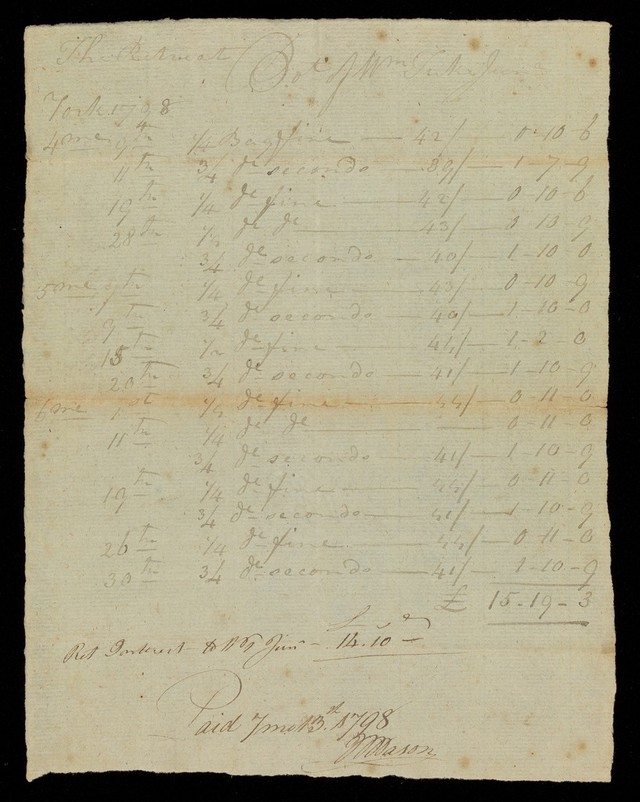 The Retreat Bot of Wm Tuke Junr
York 1798
4 mo 9th 1/4 Bag fine — 42/ — 0-10-6
11th 3/4 do seconds — 39/ — 1-7-9
19th 1/4 do fine — 42/ — 0-10-6
28th 1/4 do do — 43/ — 0-10-9
3/4 do seconds — 40/ — 1-10-0
5 mo 1/4 do fine — 43/ — 0-10-9
9th 3/4 do seconds — 40/ — 1-10-0
15th 1/2 do fine — 44/ — 1-2-0
20th 3/4 do seconds — 41/ — 1-10-9
6 mo 1st 1/4 do fine — 44/ — 0-11-0
11th 1/4 do do — 0-11-0
3/4 do seconds — 41/ — 1-10-9
19th 1/4 do fine — 44/ — 0-11-0
3/4 do seconds — 41/ — 1-10-9
26th 1/4 do fine — 44/ — 0-11-0
30th 3/4 do seconds — 41/ — 1-10-9
£ 15-19-3
Interest 14.10
Paid 7mo 13th 1798
Mason